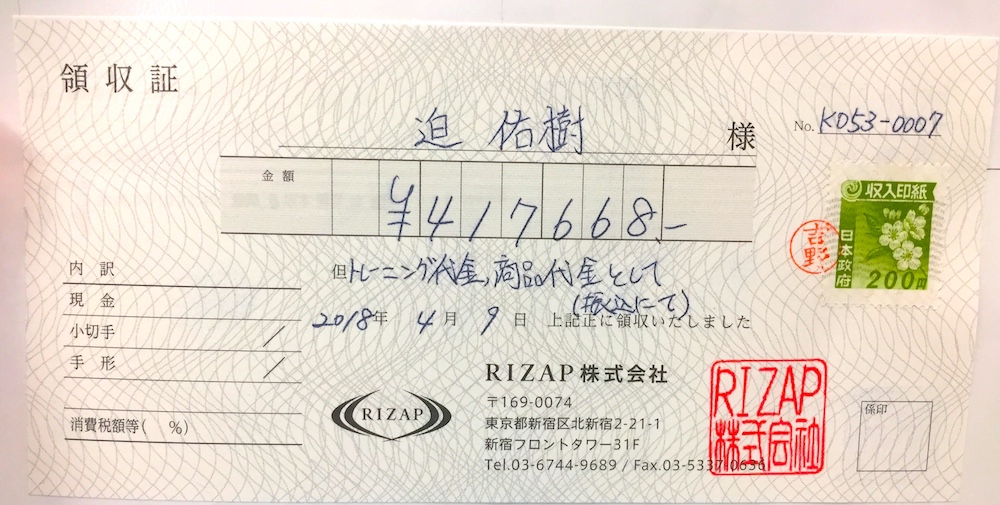 領収証
迫 佑樹 様
No. K053-0007
金額 ¥417668.-
収入印紙
日本政府
200円
吉野
但トレーニング代金,商品代金として
(振込にて)
2018年 4月 9日 上記正に領収いたしました
内訳
現金
小切手 /
手形 /
消費税額等( %)
RIZAP
RIZAP株式会社
〒169-0074
東京都新宿区北新宿2-21-1
新宿フロントタワー31F
Tel.03-6744-9689 / Fax.03-5337-0636
RIZAP
株式会社
係印